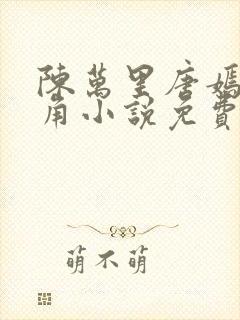 陳萬里唐嫣
角小說免費
萌不萌